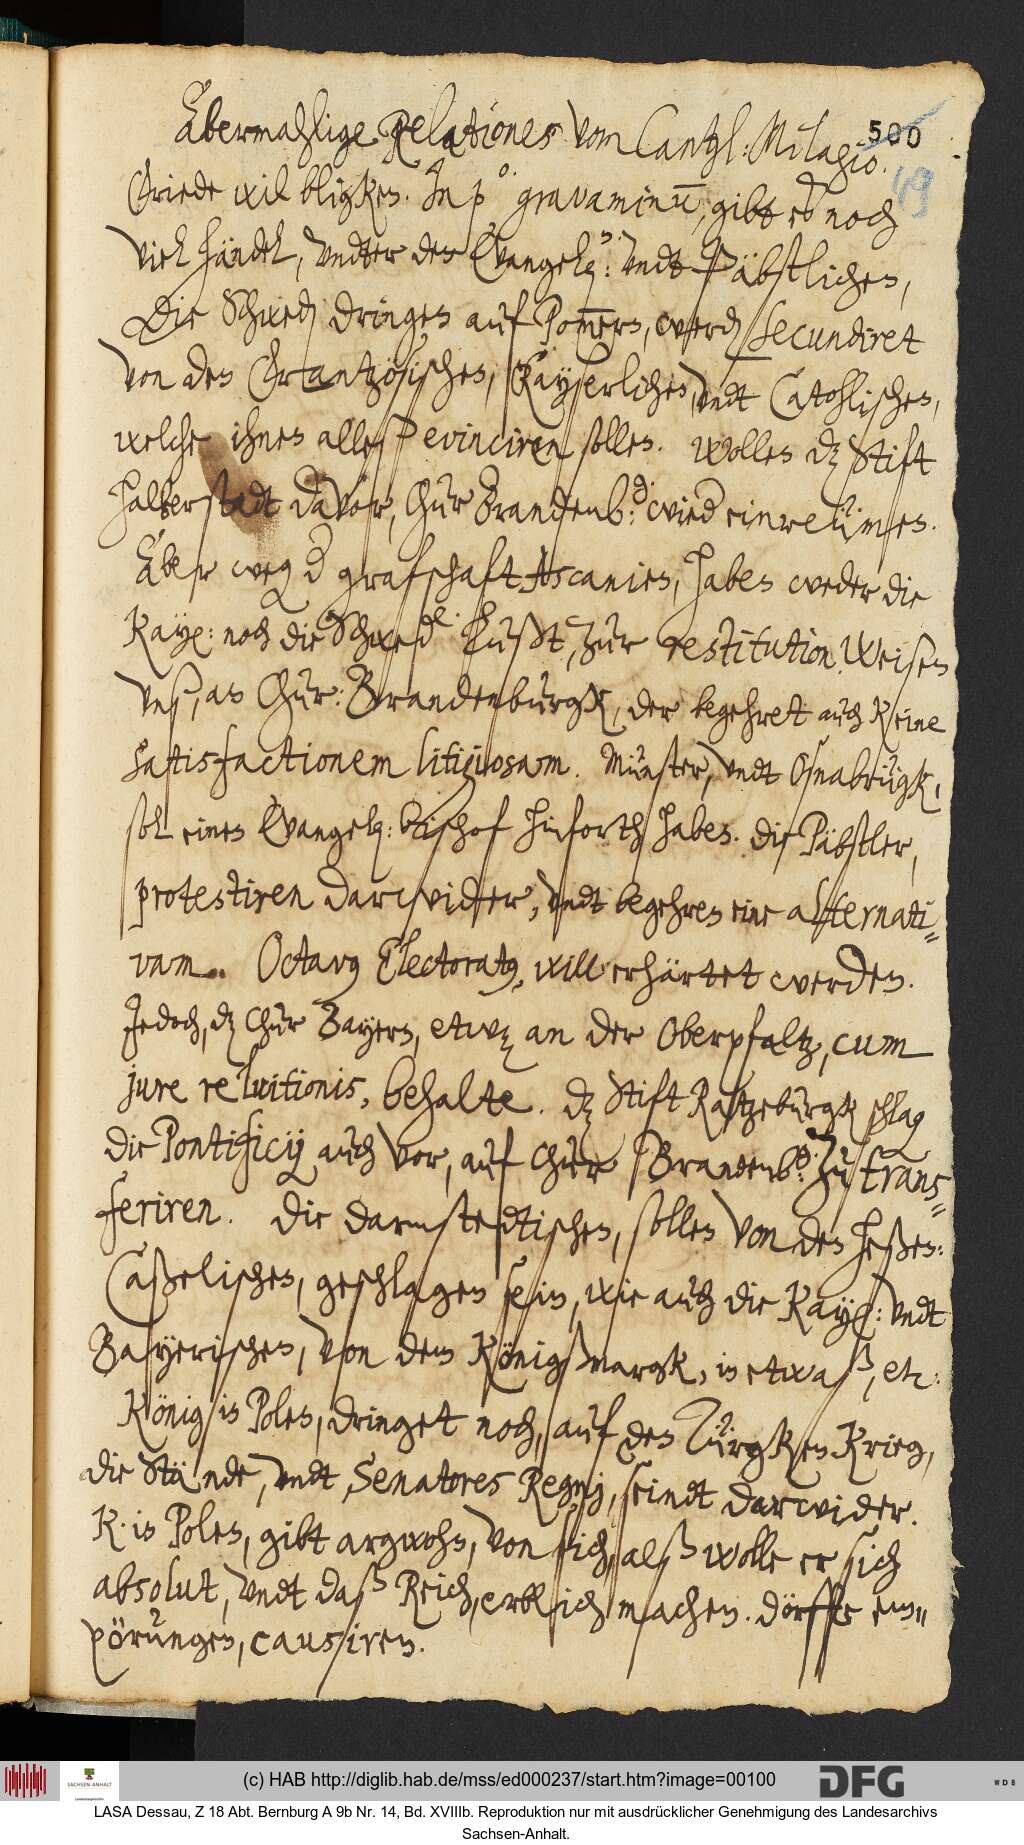 Abermahlige Relationes vom Cantzl: Milagio.
500
49
Friede wil bligken. In p.o gravaminū, gibt es noch
viel händel, vndter den Evangel: vndt Päbstlichen,
Die Schwed: dringen auf Pom̄ern, werd: secundiret
von den Frantzösischen, Kayserlichen, vndt Catohlischen,
welche ihnen alles evinciren sollen. Wollen dz Stift
Halberstadt davor, Chur Brandenb: wied einreümen.
Aber weg d grafschaft Ascanien, haben weder die
Kay: noch die Schwed: Lust, zur restitution. Weisen
vnß, an Chur: Brandenburgk, der begehret auch keine
satisfactionem litigiosam. Münster, vndt Osnabrügk,
sol einen Evangel: bischof hinforth haben. die Päbstler,
protestiren darwider, vndt begehren eine alternati=
vam. Octavus Electoratus, will erhärtet werden.
Jedoch, dz Chur Bayern, etwz an der Oberpfaltz, cum
jure reluitionis, behalte. dz Stift Ratzeburgk schlag
die Pontificij auch vor, auf Chur Brandenb: zu trans=
feriren. Die Darmstedtischen, sollen von den Heßen:
Caßelischen, geschlagen sein, wie auch die Kay: vndt
Bayerischen, von dem Königßmargk, in etwaß, etc:
König in Polen, dringet noch, auf den Türgken Krieg,
die Stände, vndt Senatores Regnj, seindt darwider.
K. in Polen, gibt argwohn, von sich, alß wolle er sich
absolut, vndt daß Reich, erblich machen. dörffte em=
pörungen, causiren.
(c) HAB http://diglib.hab.de/mss/ed000237/start.htm?image=00100
SACHSEN-ANHALT
DFG
WDB
LASA Dessau, Z 18 Abt. Bernburg A 9b Nr. 14, Bd. XVIIIb. Reproduktion nur mit ausdrücklicher Genehmigung des Landesarchivs
Sachsen-Anhalt.